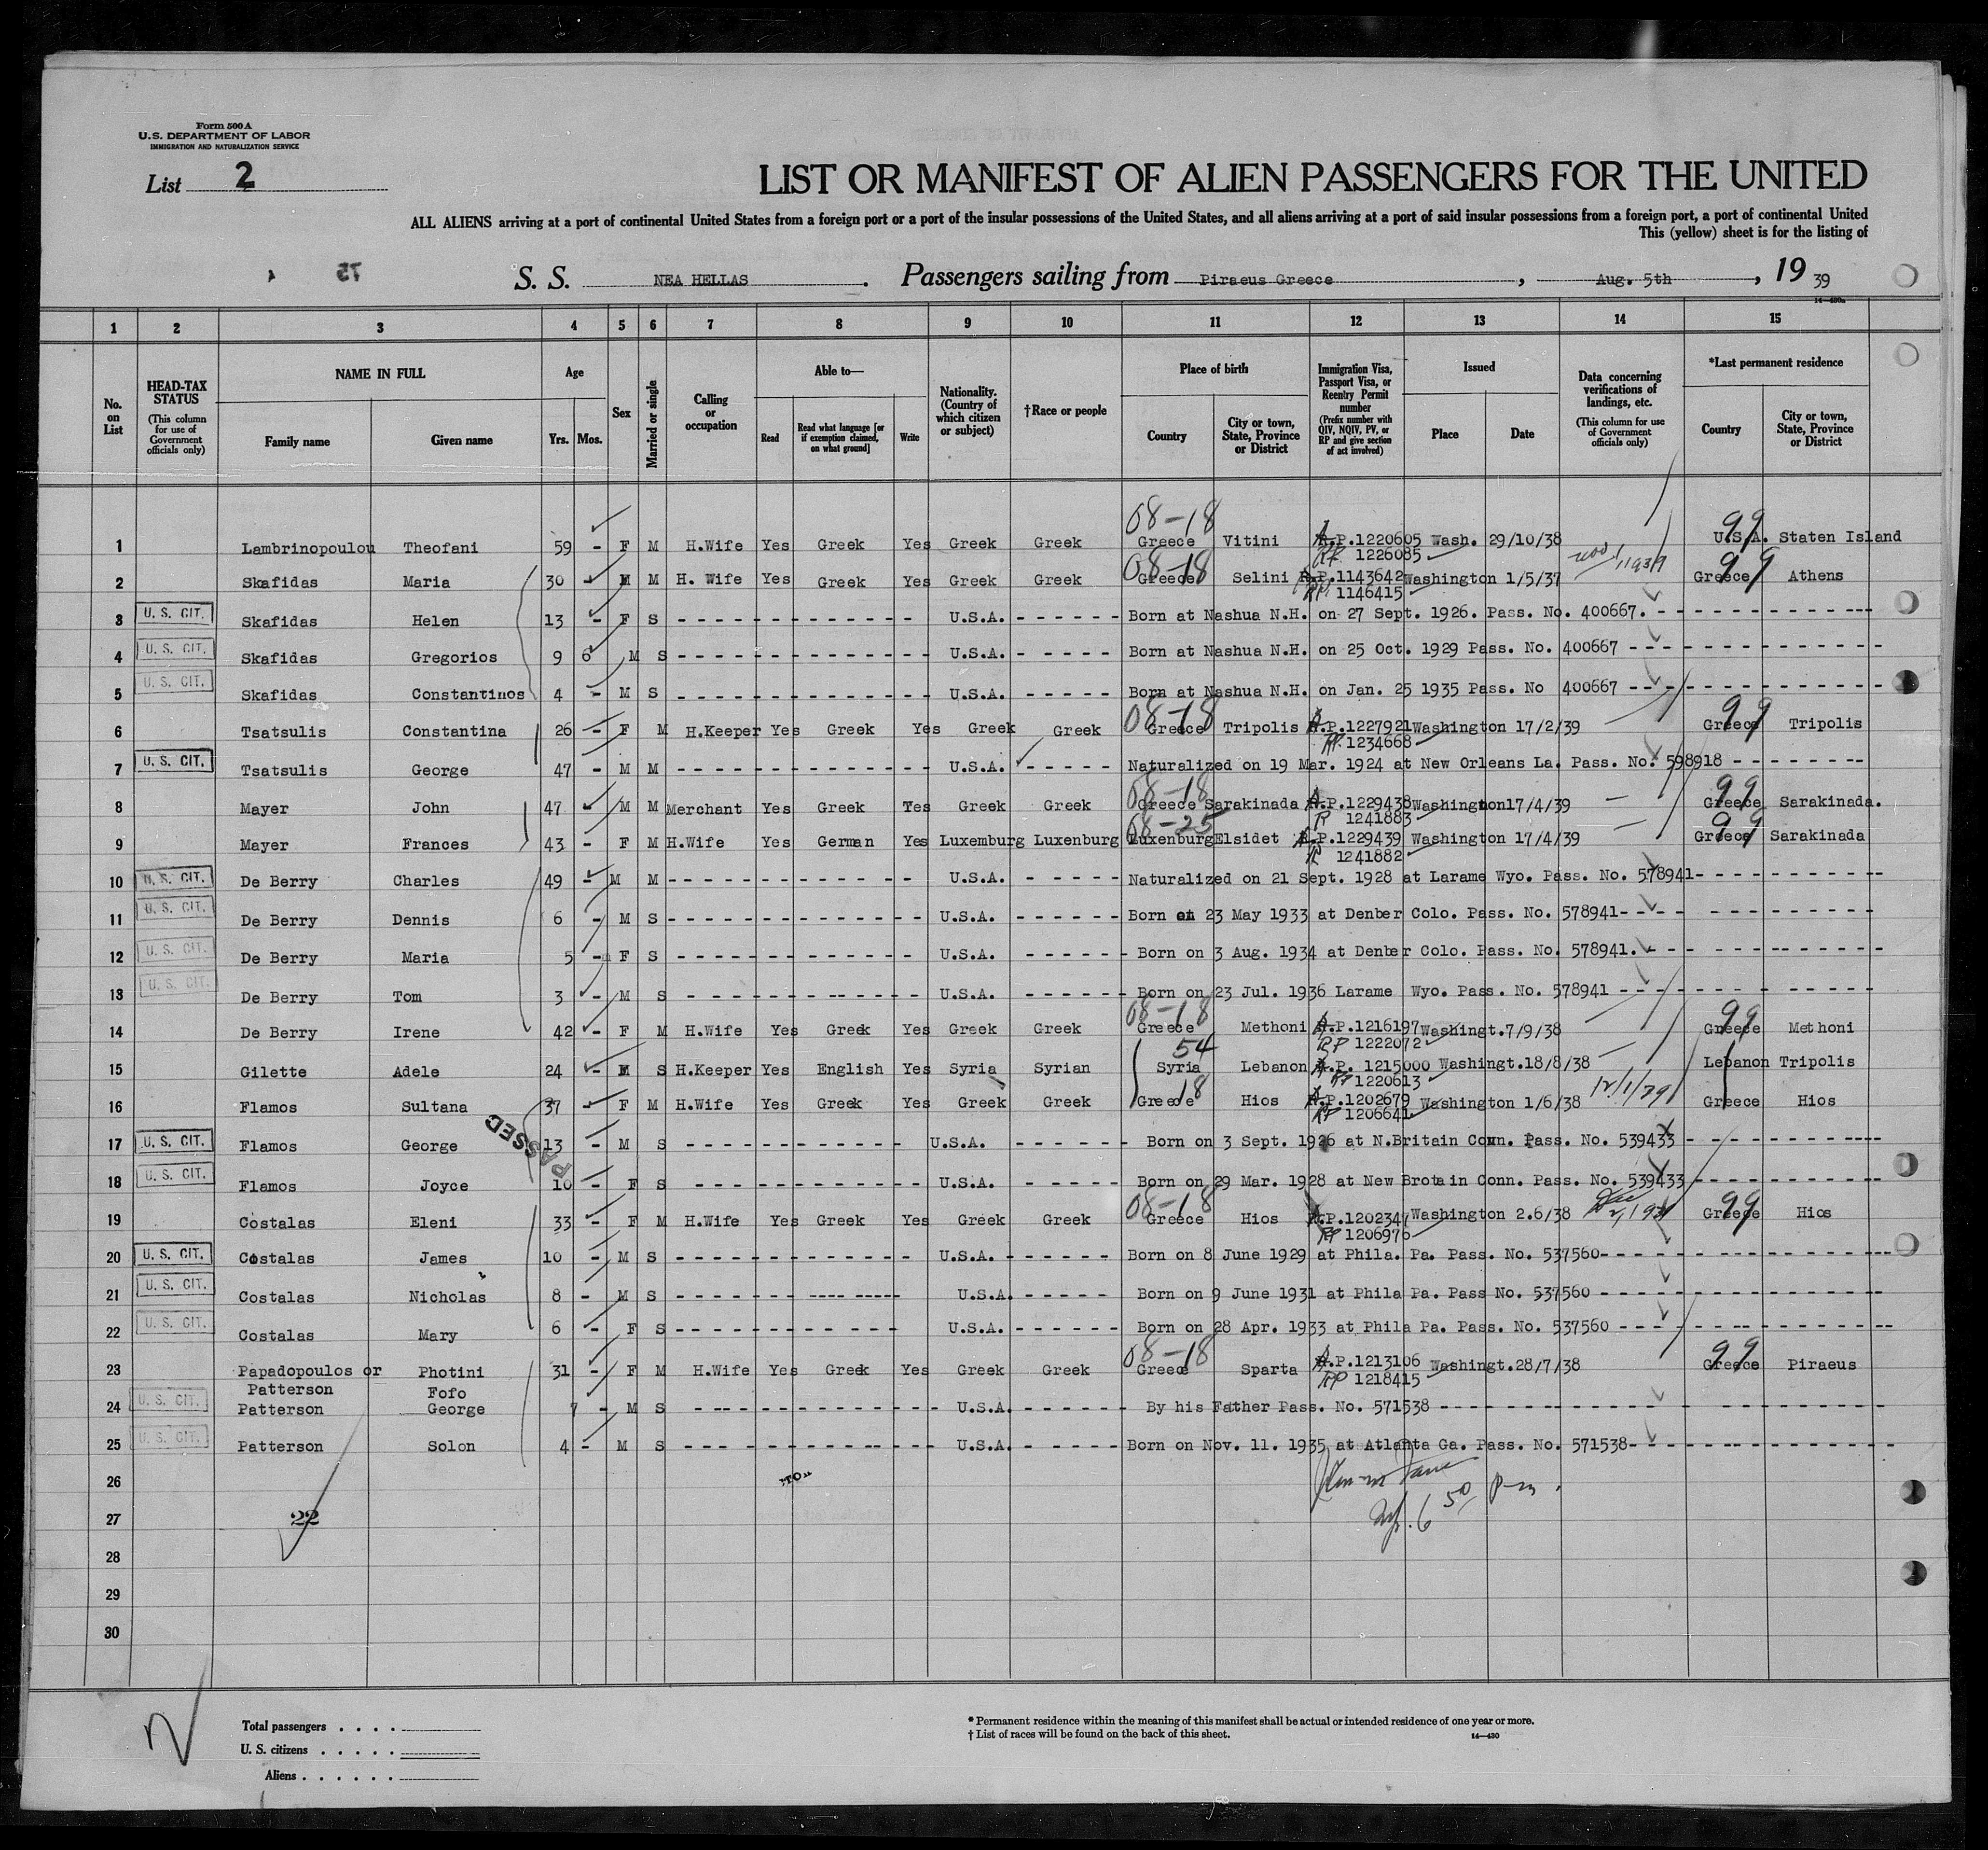 Form 500 A
U.S. DEPARTMENT OF LABOR
IMMIGRATION AND NATURALIZATION SERVICE
List 2
LIST OR MANIFEST OF ALIEN PASSENGERS FOR THE UNITED
ALL ALIENS arriving at a port of continental United States from a foreign port or a port of the insular possessions of the United States, and all aliens arriving at a port of said insular possessions from a foreign port, a port of continental United
This (yellow) sheet is for the listing of
75
S. S. NEA HELLAS. Passengers sailing from Piraeus Greece, Aug. 5th, 19 39
14—430a
1 2 3 4 5 6 7 8 9 10 11 12 13 14 15
No. on List
HEAD-TAX STATUS (This column for use of Government officials only)
NAME IN FULL Family name Given name
Age Yrs. Mos.
Sex
Married or single
Calling or occupation
Able to— Read Read what language [or if exemption claimed, on what ground] Write
Nationality. (Country of which citizen or subject)
†Race or people
Place of birth Country City or town, State, Province or District
Immigration Visa, Passport Visa, or Reentry Permit number (Prefix number with QIV, NQIV, PV, or RP and give section of act involved)
Issued Place Date
Data concerning verifications of landings, etc. (This column for use of Government officials only)
*Last permanent residence Country City or town, State, Province or District
08-18 99
1 Lambrinopoulou Theofani 59 - F M H.Wife Yes Greek Yes Greek Greek Greece Vitini R.P.1220605 Wash. 29/10/38 U.S.A. Staten Island
RP 1226085
08-18 99
2 Skafidas Maria 30 - M M H. Wife Yes Greek Yes Greek Greek Greece Selini R.P.1143642 Washington 1/5/37 Greece Athens
RP 1146415
3 U. S. CIT. Skafidas Helen 13 - F S - - - U.S.A. - - - Born at Nashua N.H. on 27 Sept. 1926. Pass. No. 400667. - - -
4 U. S. CIT. Skafidas Gregorios 9 6 M S - - - U.S.A. - - - Born at Nashua N.H. on 25 Oct. 1929 Pass. No. 400667 - - -
5 U. S. CIT. Skafidas Constantinos 4 - M S - - - U.S.A. - - - Born at Nashua N.H. on Jan. 25 1935 Pass. No 400667 - - -
08-18 99
6 Tsatsulis Constantina 26 - F M H.Keeper Yes Greek Yes Greek Greek Greece Tripolis R.P.1227921 Washington 17/2/39 Greece Tripolis
RP 1234668
7 U. S. CIT. Tsatsulis George 47 - M M - - - U.S.A. - - - Naturalized on 19 Mar. 1924 at New Orleans La. Pass. No. 598918 - - -
08-18 99
8 Mayer John 47 - M M Merchant Yes Greek Yes Greek Greek Greece Sarakinada R.P.1229438 Washington17/4/39 Greece Sarakinada.
1241883
08-25 99
9 Mayer Frances 43 - F M H.Wife Yes German Yes Luxemburg Luxenburg Luxenburg Elsidet R.P.1229439 Washington 17/4/39 Greece Sarakinada
1241882
10 U. S. CIT. De Berry Charles 49 - M M - - - U.S.A. - - - Naturalized on 21 Sept. 1928 at Larame Wyo. Pass. No. 578941- - -
11 U. S. CIT. De Berry Dennis 6 - M S - - - U.S.A. - - - Born on 23 May 1933 at Denber Colo. Pass. No. 578941- - -
12 U. S. CIT. De Berry Maria 5 - F S - - - U.S.A. - - - Born on 3 Aug. 1934 at Denber Colo. Pass. No. 578941. - - -
13 U. S. CIT. De Berry Tom 3 - M S - - - U.S.A. - - - Born on 23 Jul. 1936 Larame Wyo. Pass. No. 578941 - - -
08-18 99
14 De Berry Irene 42 - F M H.Wife Yes Greek Yes Greek Greek Greece Methoni R.P.1216197 Washingt.7/9/38 Greece Methoni
RP 1222072
54
15 Gilette Adele 24 - M S H.Keeper Yes English Yes Syria Syrian Syria Lebanon R.P. 1215000 Washingt.18/8/38 Lebanon Tripolis
RP 1220613
18
16 Flamos Sultana 37 - F M H.Wife Yes Greek Yes Greek Greek Greece Hios R.P.1202679 Washington 1/6/38 Greece Hios
RP 1206641
PASSED
17 U. S. CIT. Flamos George 13 - M S - - - U.S.A. - - - Born on 3 Sept. 1926 at N.Britain Conn. Pass. No. 539433 - - -
18 U. S. CIT. Flamos Joyce 10 - F S - - - U.S.A. - - - Born on 29 Mar. 1928 at New Brotain Conn. Pass. No. 539433 - - -
08-18 99
19 Costalas Eleni 33 - F M H.Wife Yes Greek Yes Greek Greek Greece Hios R.P.1202347 Washington 2.6/38 Greece Hios
RP 1206976
20 U. S. CIT. Costalas James 10 - M S - - - U.S.A. - - - Born on 8 June 1929 at Phila. Pa. Pass. No. 537560- - -
21 U. S. CIT. Costalas Nicholas 8 - M S - - - U.S.A. - - - Born on 9 June 1931 at Phila Pa. Pass No. 537560 - - -
22 U. S. CIT. Costalas Mary 6 - F S - - - U.S.A. - - - Born on 28 Apr. 1933 at Phila Pa. Pass. No. 537560 - - -
08-18 99
23 Papadopoulos or Photini 31 - F M H.Wife Yes Greek Yes Greek Greek Greece Sparta R.P.1213106 Washingt.28/7/38 Greece Piraeus
Patterson Fofo RP 1218415
24 U. S. CIT. Patterson George 7 - M S - - - U.S.A. - - - By his Father Pass. No. 571538 - - -
25 U. S. CIT. Patterson Solon 4 - M S - - - U.S.A. - - - Born on Nov. 11. 1935 at Atlanta Ga. Pass. No. 571538- - -
26
27 22
28
29
30
Total passengers . . . .
U. S. citizens . . . . .
Aliens . . . . . .
* Permanent residence within the meaning of this manifest shall be actual or intended residence of one year or more.
† List of races will be found on the back of this sheet.
14—430